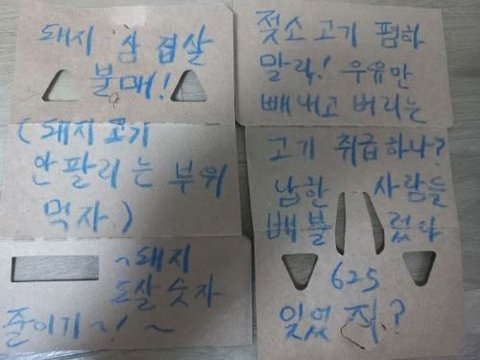 돼지 삼겹살
불매!
(돼지고기
안팔리는 부위
먹자.)
~돼지
도살 숫자
줄이기~!~
젖소 고기 폄하
말라! 우유만
빼내고 버리는
고기 취급하나?
남한 사람들
배불렀다
625
잊었지?